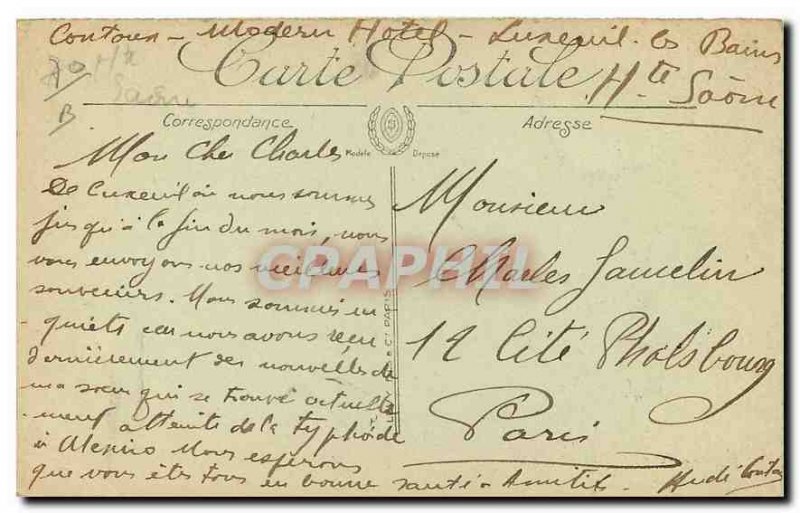 Contoux - Modern Hotel - Luxeuil-les Bains
Hte Saône
70 Hte
Saône
B
Carte Postale
Correspondance
Adresse
Modèle Déposé
Mon Cher Charles
De Luxeuil où nous sommes
jusqu'à la fin du mois, nous
vous envoyons nos meilleures
souvenirs. Nous sommes in
quiets car nous avons reçu
dernièrement des nouvelles de
ma sœur qui se trouve actuelle
-ment atteinte de la typhoïde
à Nous espérons
que vous êtes tous en bonne santé. Amitiés.
Monsieur
Charles Gamelin
12 Cité Phalsbourg
Paris
CPARAMA.COM
Cie PARIS